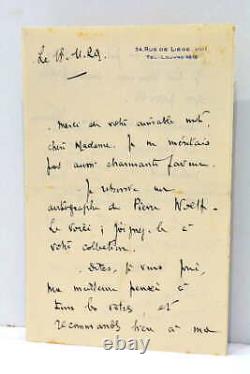 54, RUE DE LIÉGE, VIIIᵉ
TEL-LOUVRE
Le 18.
Merci de votre aimable mot,
chère Madame. Je ne méritais
pas aussi charmante faveur.
Je retrouve un
autographe de Pierre Wolff.
Le voici; joignez-le à
votre collection.
Dites, je vous prie,
ma meilleure pensée à
tous les vôtres, et
recommandez bien à ma